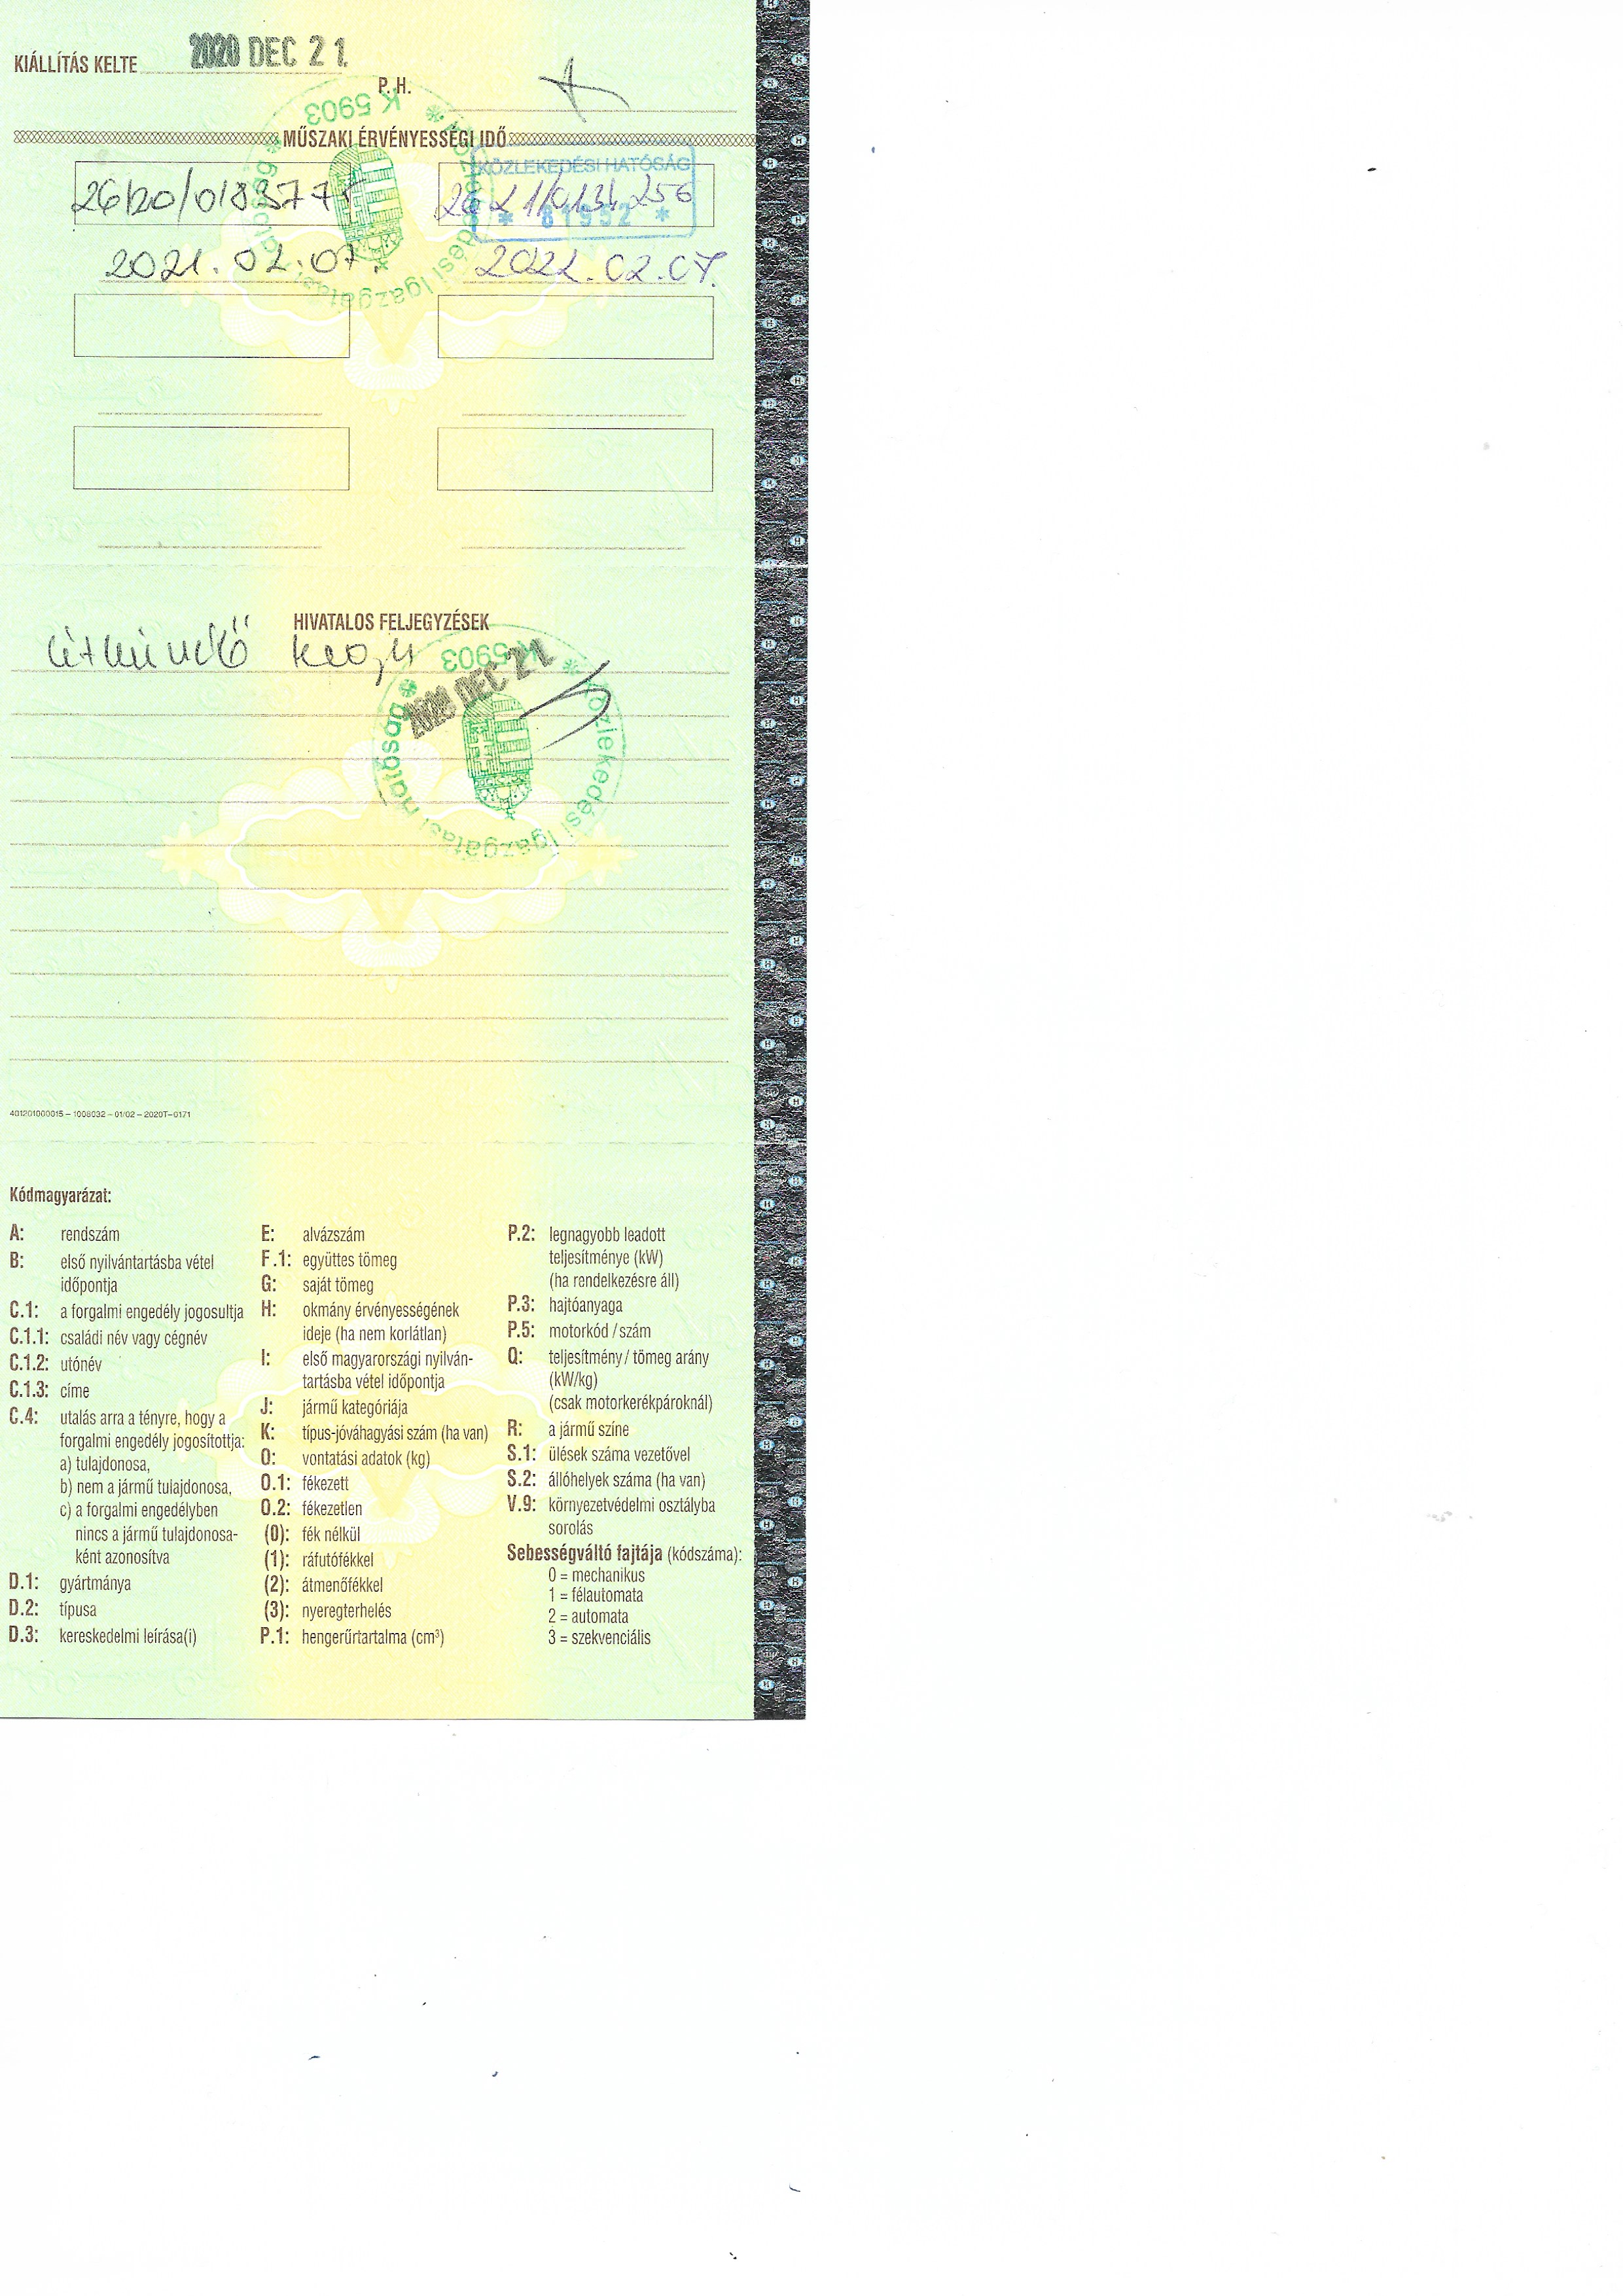 KIÁLLÍTÁS KELTE 2020 DEC 21.
P. H.
K 5903
MŰSZAKI ÉRVÉNYESSÉGI IDŐ
KÖZLEKEDÉSI HATÓSÁG
* 81952 *
2021.02.07. 2022.02.07.
HIVATALOS FELJEGYZÉSEK
K 5903
2020 DEC 21.
* Közlekedési Igazgatási Hatóság *
401201000015 – 1008032 – 01/02 – 2020T–0171
Kódmagyarázat:
A: rendszám
B: első nyilvántartásba vétel
időpontja
C.1: a forgalmi engedély jogosultja
C.1.1: családi név vagy cégnév
C.1.2: utónév
C.1.3: címe
C.4: utalás arra a tényre, hogy a
forgalmi engedély jogosítottja:
a) tulajdonosa,
b) nem a jármű tulajdonosa,
c) a forgalmi engedélyben
nincs a jármű tulajdonosa-
ként azonosítva
D.1: gyártmánya
D.2: típusa
D.3: kereskedelmi leírása(i)
E: alvázszám
F.1: együttes tömeg
G: saját tömeg
H: okmány érvényességének
ideje (ha nem korlátlan)
I: első magyarországi nyilván-
tartásba vétel időpontja
J: jármű kategóriája
K: típus-jóváhagyási szám (ha van)
O: vontatási adatok (kg)
O.1: fékezett
O.2: fékezetlen
(0): fék nélkül
(1): ráfutófékkel
(2): átmenőfékkel
(3): nyeregterhelés
P.1: hengerűrtartalma (cm³)
P.2: legnagyobb leadott
teljesítménye (kW)
(ha rendelkezésre áll)
P.3: hajtóanyaga
P.5: motorkód / szám
Q: teljesítmény / tömeg arány
(kW/kg)
(csak motorkerékpároknál)
R: a jármű színe
S.1: ülések száma vezetővel
S.2: állóhelyek száma (ha van)
V.9: környezetvédelmi osztályba
sorolás
Sebességváltó fajtája (kódszáma):
0 = mechanikus
1 = félautomata
2 = automata
3 = szekvenciális